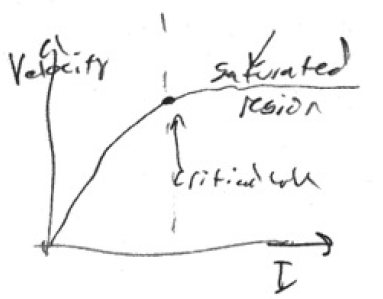 Velocity
saturated
region
critical
I